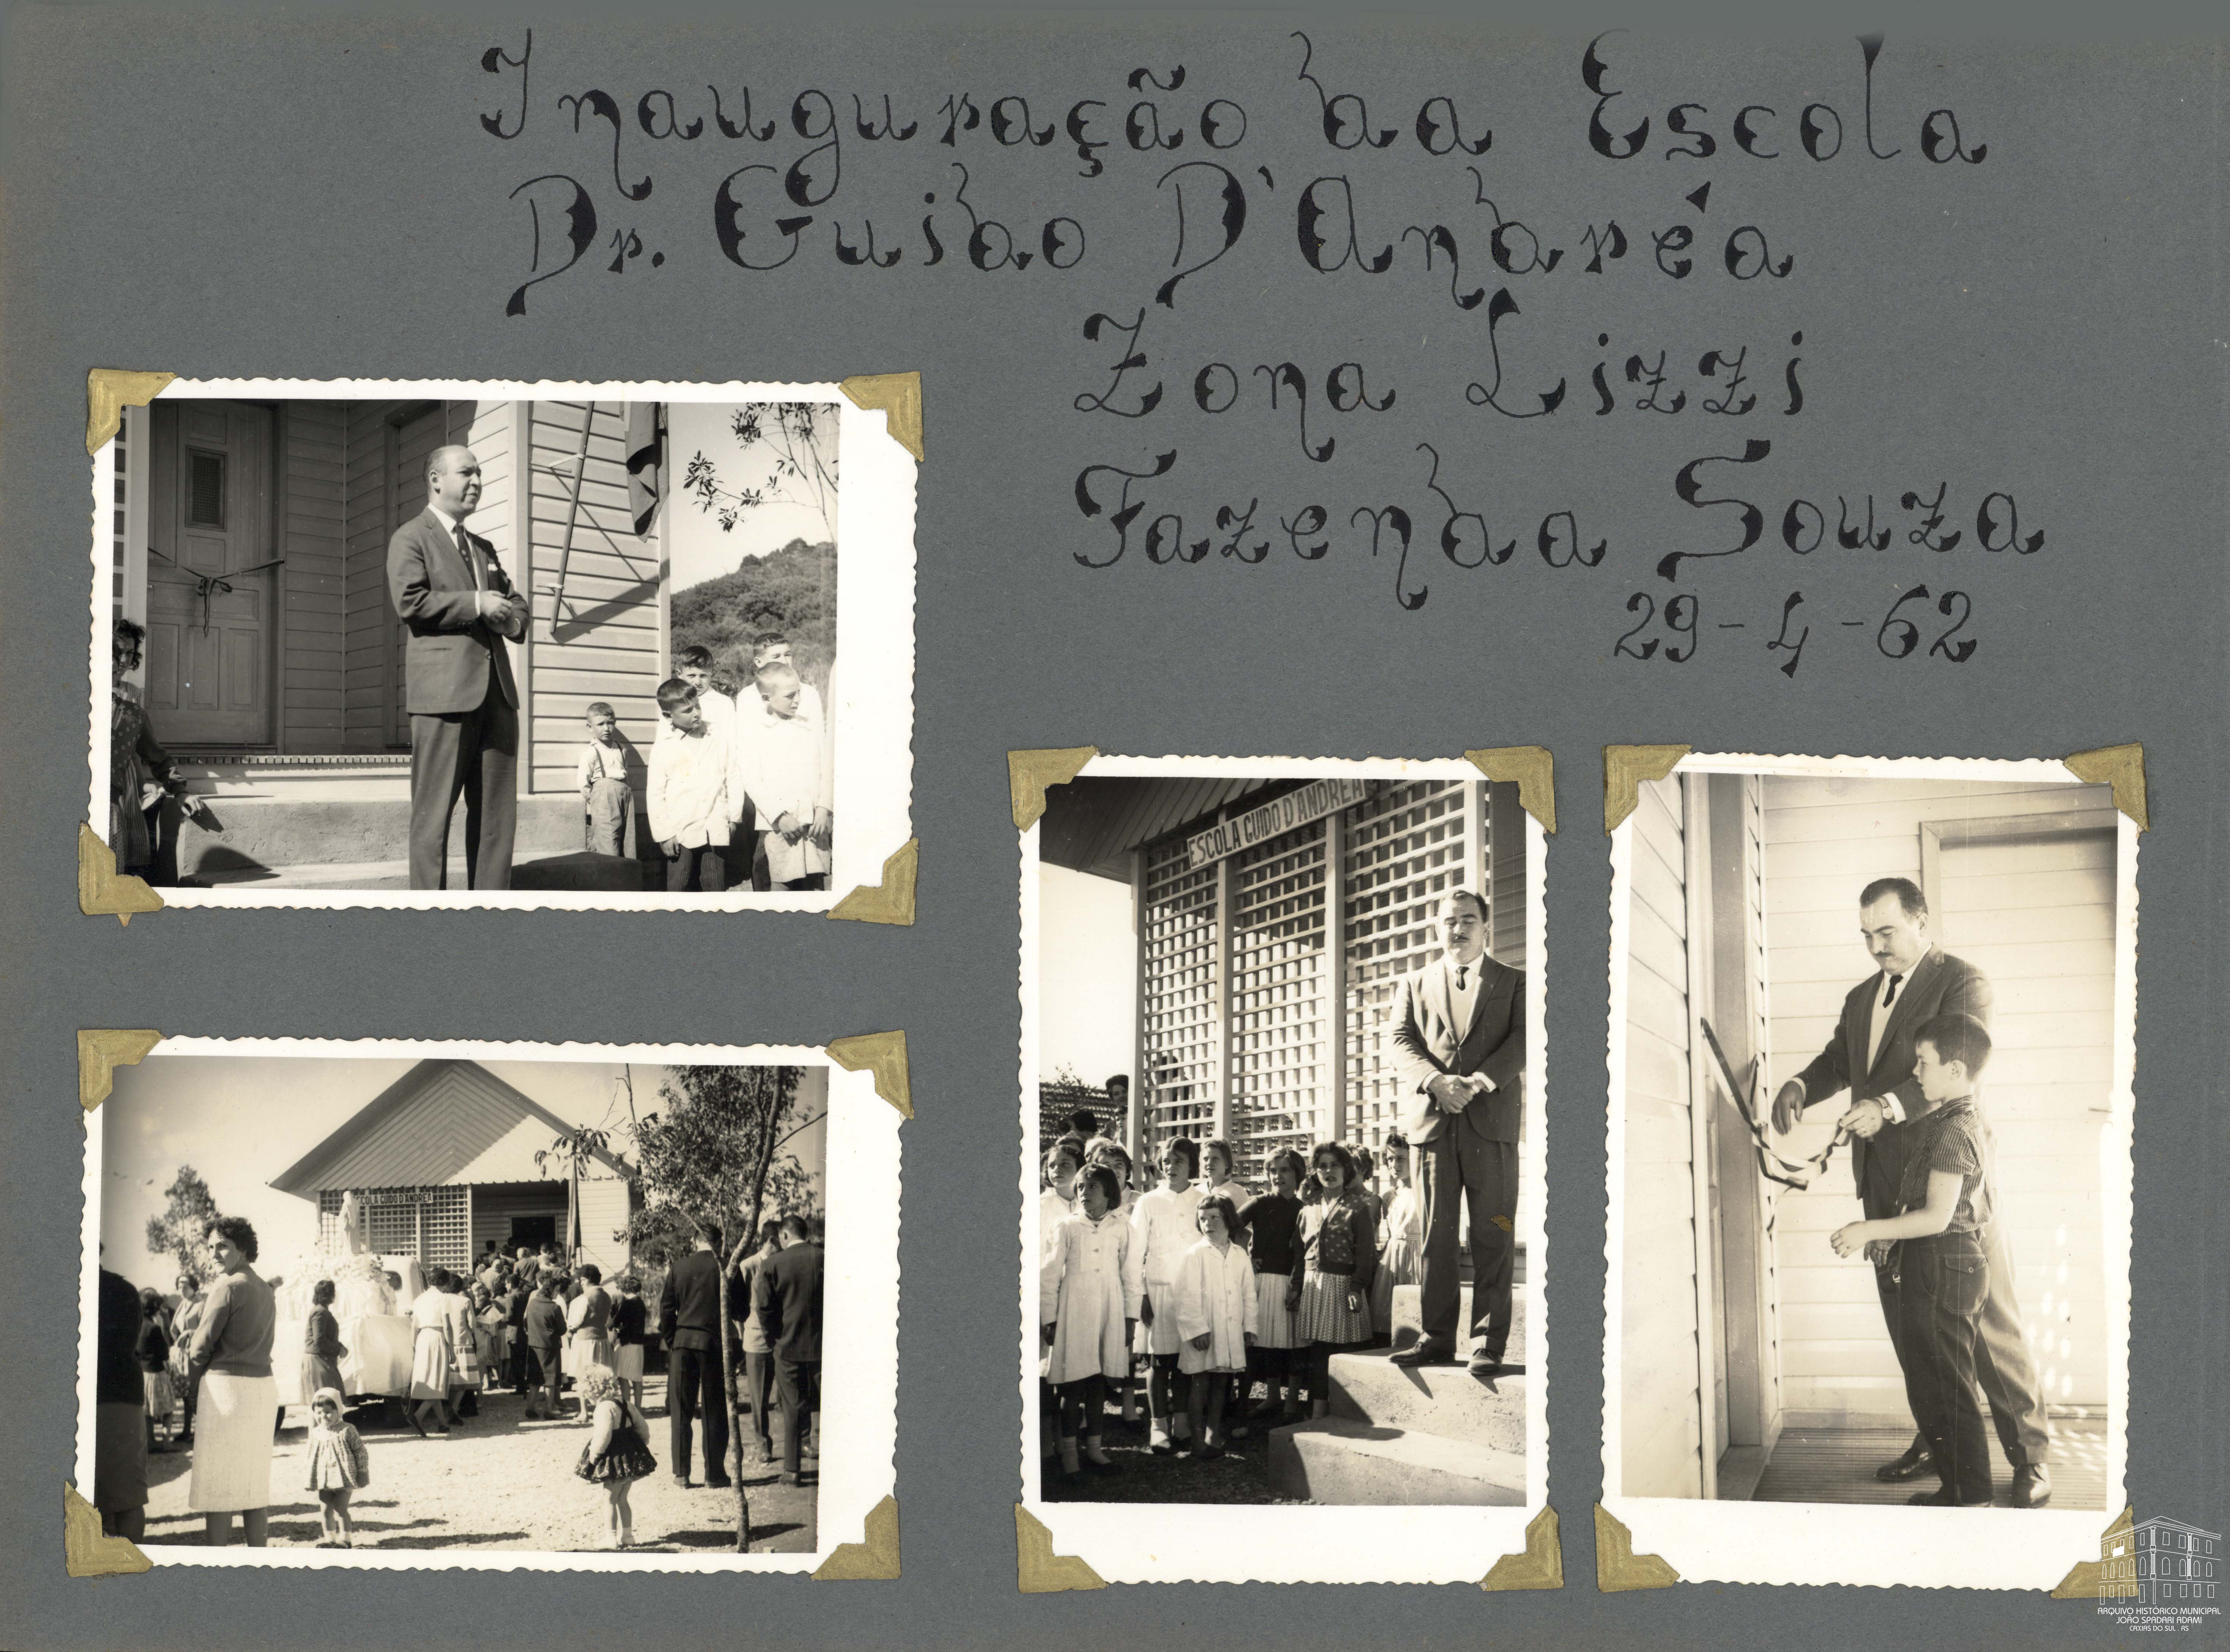 Inauguração da Escola
Dr. Guido D'Andréa
Zona Lizzi
Fazenda Souza
29-4-62
ESCOLA GUIDO D'ANDREA
COLA GUIDO D'ANDREA
ARQUIVO HISTÓRICO MUNICIPAL
JOÃO SPADARI ADAMI
CAXIAS DO SUL . RS